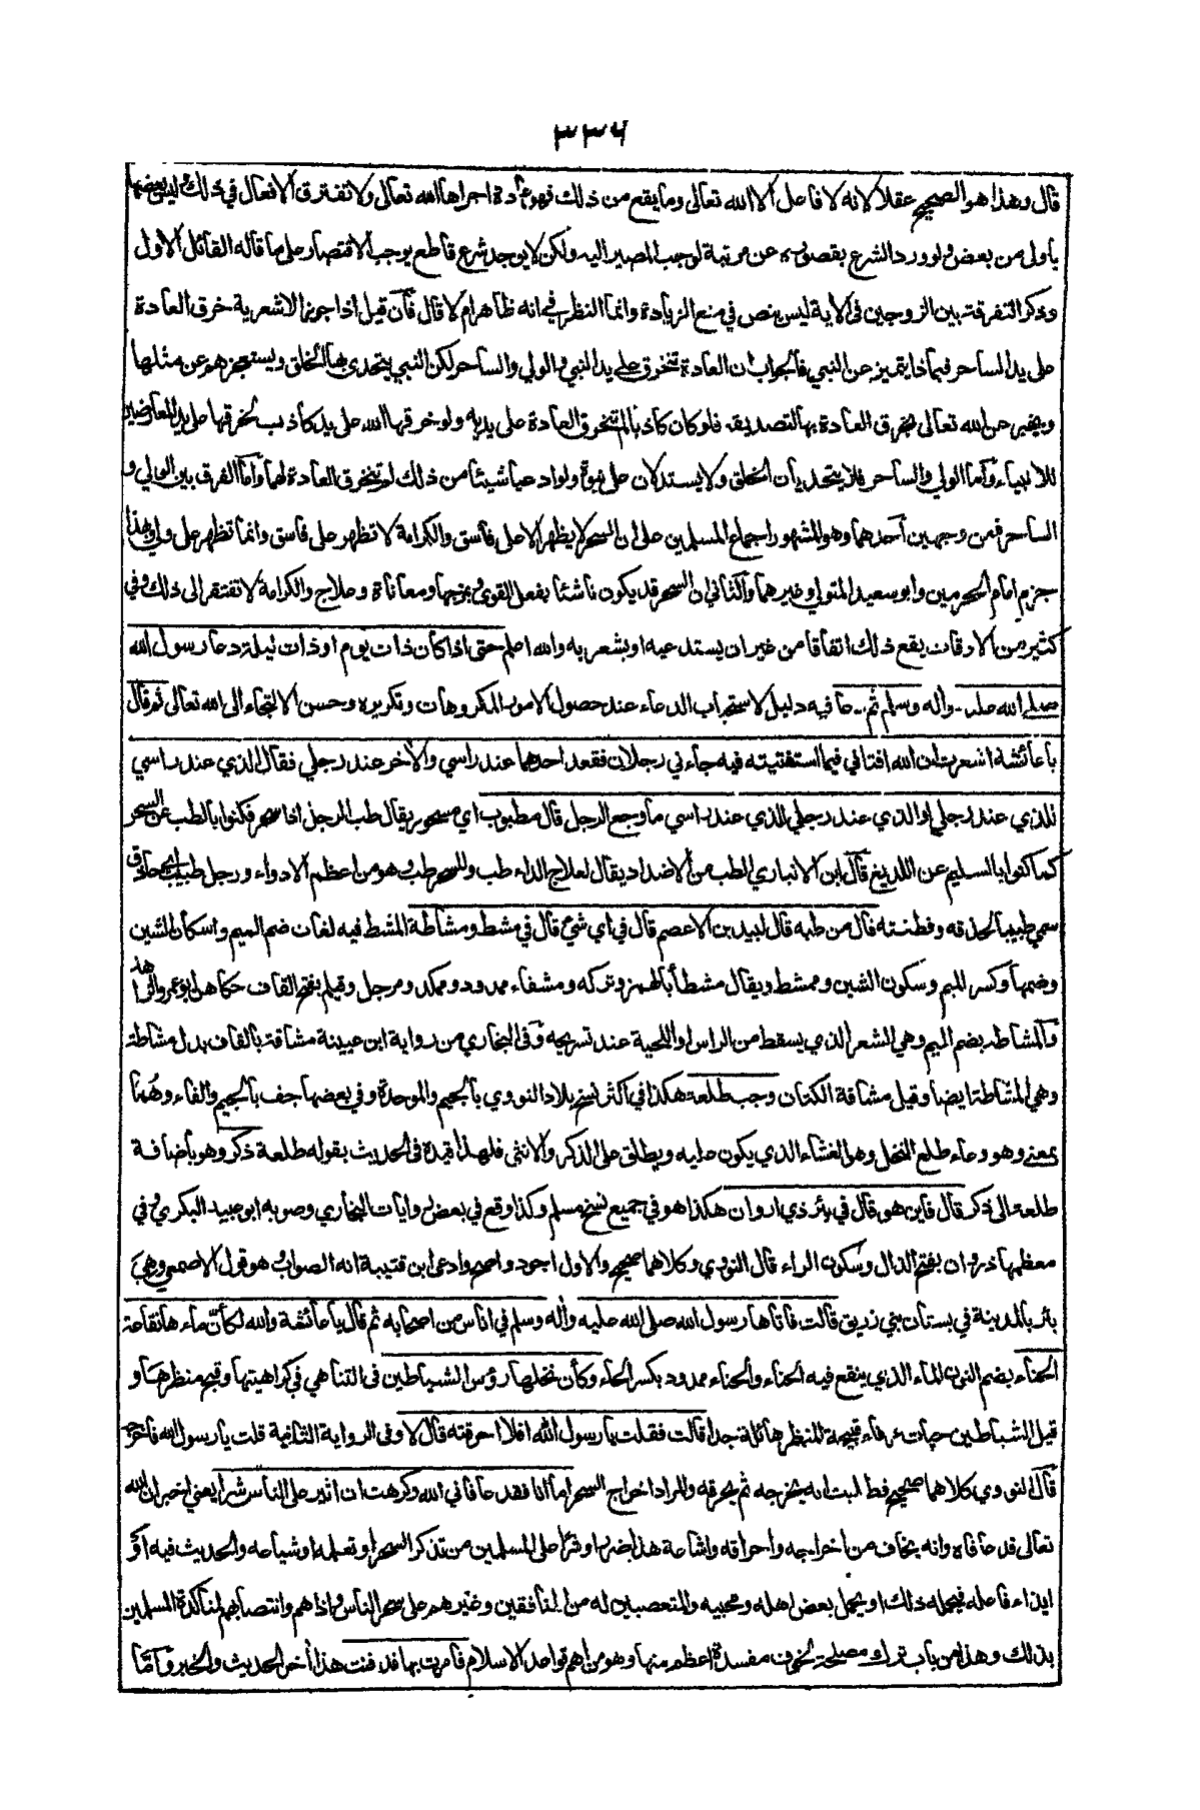 ٣٣٦
قال وهذا هو الصحيح عقلا لانه لا فاعل الا الله تعالى وما يقع من ذلك فهو عادة اجراها الله تعالى ولا تفترق الافعال في ذلك وليس بعضها
باولى من بعض ولو ورد الشرع بقصوره عن مرتبة لوجب المصير اليه ولكن لا يوجد شرع قاطع يوجب الاقتصار على ما قاله القائل الاول
وذكر التفرقة بين الزوجين في الاية ليس بنص في منع الزيادة وانما النظر في انه ظاهر ام لا قال فان قيل اذا جوز الاشعرية خرق العادة
على يد الساحر فبماذا يتميز عن النبي فالجواب ان العادة تنخرق على يد النبي والولي والساحر لكن النبي يتحدى بها الخلق ويستعجزهم عن مثلها
ويخبر عن الله تعالى بخرق العادة بها لتصديقه فلو كان كاذبا لم تنخرق العادة على يديه ولو خرقها الله على يد كاذب لخرقها على يد المعارضين
للانبياء واما الولي والساحر فلا يتحديان الخلق ولا يستدلان على نبوة ولو ادعيا شيئا من ذلك لم تنخرق العادة لهما واما الفرق بين الولي و
الساحر فمن وجهين احدهما وهو المشهور اجماع المسلمين على ان السحر لا يظهر الا على فاسق والكرامة لا تظهر على فاسق وانما تظهر على ولي وبهذا
جزم امام الحرمين وابو سعيد المتولي وغيرهما والثاني ان السحر قد يكون ناشئا بفعل القوى ومزجها ومعاناة وعلاج والكرامة لا تفتقر الى ذلك وفي
كثير من الاوقات يقع ذلك اتفاقا من غير ان يستدعيه او يشعر به والله اعلم حتى اذا كان ذات يوم او ذات ليلة دعا رسول الله
صلى الله عليه وآله وسلم ثم دعا فيه دليل لاستحباب الدعاء عند حصول الامور المكروهات وتكريره وحسن الالتجاء الى الله تعالى ثم قال
يا عائشة اشعرت ان الله افتاني فيما استفتيته فيه جاءني رجلان فقعد احدهما عند راسي والآخر عند رجلي فقال الذي عند راسي
للذي عند رجلي او الذي عند رجلي للذي عند راسي ما وجع الرجل قال مطبوب اي مسحور يقال طب الرجل اذا سحر فكنوا بالطب عن السحر
كما كنوا بالسليم عن اللديغ قال ابن الانباري الطب من الاضداد يقال لعلاج الداء طب وللسحر طب وهو من اعظم الادواء ورجل طبيب اي حاذق
سمي طبيبا لحذقه وفطنته قال من طبه قال لبيد بن الاعصم قال في اي شيء قال في مشط ومشاطة المشط فيه لغات ضم الميم واسكان الشين
وضمها وكسر الميم وسكون الشين وممشط ويقال مشطأ بالهمز وتركه ومشفاء ممدود وممكد ومرجل وقيلم بفتح القاف حكاهن ابو عمر والزاهد
والمشاطة بضم الميم وهي الشعر الذي يسقط من الراس او اللحية عند تسريحه وفى البخاري من رواية ابن عيينة مشاقة بالقاف بدل مشاطة
وهي المشاطة ايضا وقيل مشاقة الكتان وجب طلعة هكذا في اكثر نسخ بلاد النووي بالجيم والموحدة وفي بعضها جف بالجيم والفاء وهما
بمعنى وهو وعاء طلع النخل وهو الغشاء الذي يكون عليه ويطلق على الذكر والانثى فلهذا قيده فى الحديث بقوله طلعة ذكر وهو باضافة
طلعة الى ذكر قال فاين هو قال في بئر ذي اروان هكذا هو في جميع نسخ مسلم وكذا وقع في بعض روايات البخاري وصوبه ابو عبيد البكري وفي
معظمها ذروان بفتح الذال وسكون الراء قال النووي وكلاهما صحيح والاول اجود واصح وادعى ابن قتيبة انه الصواب وهو قول الاصمعي وهي
بئر بالمدينة في بستان بني زريق قالت فاتاها رسول الله صلى الله عليه وآله وسلم في اناس من اصحابه ثم قال يا عائشة والله لكأن ماءها نقاعة
الحناء بضم النون الماء الذي ينقع فيه الحناء والحناء ممدود بكسر الحاء وكأن نخلها رؤس الشياطين فى التناهي في كراهيتها وقبح منظرها و
قيل الشياطين حيات عرفاء قبيحة المنظر هائلة جدا قالت فقلت يا رسول الله افلا احرقته قال لا وفى الرواية الثانية قلت يا رسول الله فاخرجه
قال النووي كلاهما صحيح فطلبت انه يخرجه ثم يحرقه والمراد اخراج السحر اما انا فقد عافاني الله وكرهت ان اثير على الناس شرا يعني اخبر ان الله
تعالى قد عافاه وانه يخاف من اخراجه واحراقه واشاعة هذا ضررا وشرا على المسلمين من تذكر السحر او تعلمه او شياعه والحديث فيه او
ايذاء فاعله فيحمله ذلك او يحمل بعض اهله ومحبيه والمتعصبين له من المنافقين وغيرهم على سحر الناس واذاهم وانتصابهم لمناكدة المسلمين
بذلك وهذا من باب ترك مصلحة لخوف مفسدة اعظم منها وهو من اهم قواعد الاسلام فامرت بها فدفنت هذا آخر الحديث والخبر واما